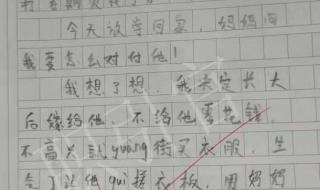 今天放学回家,妈妈问
我要怎么对付他!
我想了想,我决定长大
后嫁给他,不给他零花钱,
不高兴就guang街买衣服,生
气了让他gui搓衣板,用妈妈